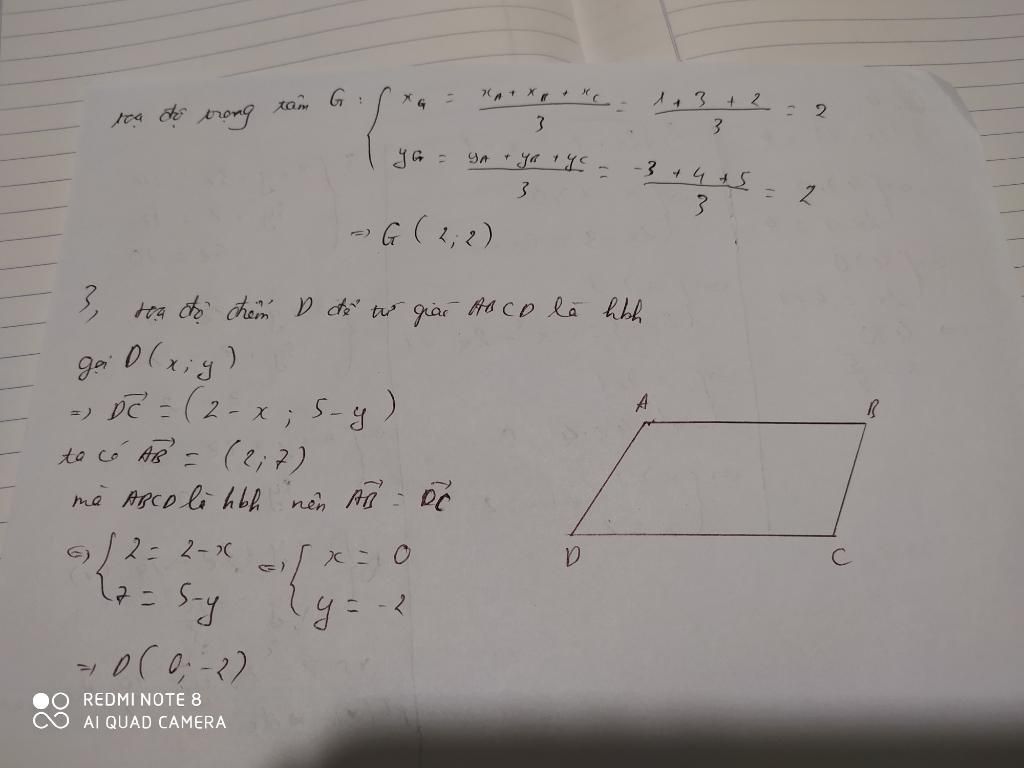 toạ độ trọng tâm G : { x_G = (x_A + x_B + x_C)/3 = (1 + 3 + 2)/3 = 2
y_G = (y_A + y_B + y_C)/3 = (-3 + 4 + 5)/3 = 2
=> G ( 2 ; 2 )
3, toạ độ điểm D để tứ giác ABCD là hbh
gọi D ( x ; y )
=> \overrightarrow{DC} = ( 2 - x ; 5 - y )
ta có \overrightarrow{AB} = ( 2 ; 7 )
mà ABCD là hbh nên \overrightarrow{AB} = \overrightarrow{DC}
<=> { 2 = 2 - x <=> { x = 0
7 = 5 - y y = -2
=> D ( 0 ; -2 )
A B
D C
REDMI NOTE 8
AI QUAD CAMERA